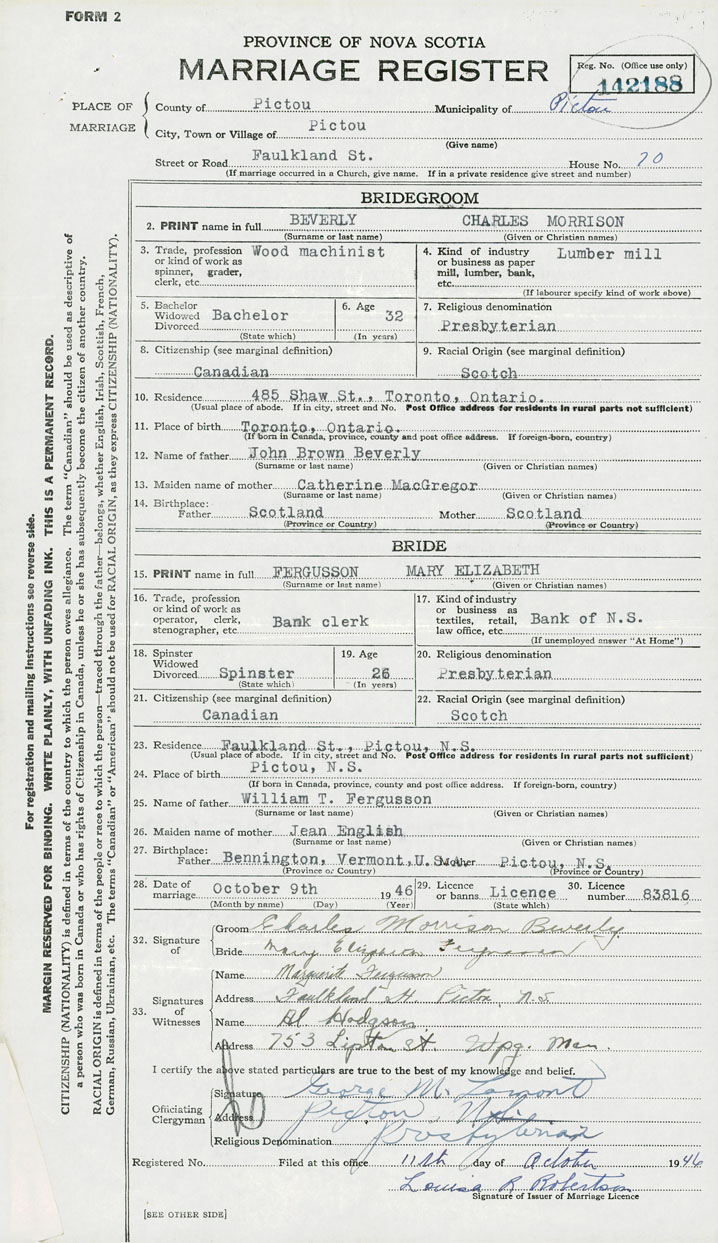 FORM 2
PROVINCE OF NOVA SCOTIA
MARRIAGE REGISTER
Reg. No. (Office use only)
142188
PLACE OF MARRIAGE
County of Pictou Municipality of Pictou
City, Town or Village of Pictou
(Give name)
Street or Road Faulkland St. House No. 70
(If marriage occurred in a Church, give name. If in a private residence give street and number)
BRIDEGROOM
2. PRINT name in full BEVERLY CHARLES MORRISON
(Surname or last name) (Given or Christian names)
3. Trade, profession or kind of work as spinner, grader, clerk, etc. Wood machinist
4. Kind of industry or business as paper mill, lumber, bank, etc. Lumber mill
(If labourer specify kind of work above)
5. Bachelor Widowed Divorced Bachelor
(State which)
6. Age 32
(In years)
7. Religious denomination
Presbyterian
8. Citizenship (see marginal definition)
Canadian
9. Racial Origin (see marginal definition)
Scotch
10. Residence 485 Shaw St., Toronto, Ontario.
(Usual place of abode. If in city, street and No. Post Office address for residents in rural parts not sufficient)
11. Place of birth Toronto, Ontario.
(If born in Canada, province, county and post office address. If foreign-born, country)
12. Name of father John Brown Beverly
(Surname or last name) (Given or Christian names)
13. Maiden name of mother Catherine MacGregor
(Surname or last name) (Given or Christian names)
14. Birthplace:
Father Scotland Mother Scotland
(Province or Country) (Province or Country)
BRIDE
15. PRINT name in full FERGUSSON MARY ELIZABETH
(Surname or last name) (Given or Christian names)
16. Trade, profession or kind of work as operator, clerk, stenographer, etc. Bank clerk
17. Kind of industry or business as textiles, retail, law office, etc. Bank of N.S.
(If unemployed answer "At Home")
18. Spinster Widowed Divorced Spinster
(State which)
19. Age 26
(In years)
20. Religious denomination
Presbyterian
21. Citizenship (see marginal definition)
Canadian
22. Racial Origin (see marginal definition)
Scotch
23. Residence Faulkland St., Pictou, N.S.
(Usual place of abode. If in city, street and No. Post Office address for residents in rural parts not sufficient)
24. Place of birth Pictou, N.S.
(If born in Canada, province, county and post office address. If foreign-born, country)
25. Name of father William T. Fergusson
(Surname or last name) (Given or Christian names)
26. Maiden name of mother Jean English
(Surname or last name) (Given or Christian names)
27. Birthplace:
Father Bennington, Vermont, U.S. Mother Pictou, N.S.
(Province or Country) (Province or Country)
28. Date of marriage October 9th 1946
(Month by name) (Day) (Year)
29. Licence or banns Licence
(State which)
30. Licence number 83816
32. Signature of
Groom Charles Morrison Beverly
Bride Mary Fergusson
33. Signatures of Witnesses
Name Fergusson
Address Faulkland St. Pictou N.S.
Name Al Hodgson
Address 753 Lipton St. Wpg. Man.
I certify the above stated particulars are true to the best of my knowledge and belief.
Officiating Clergyman
Signature George M. Lamont
Address Pictou, N.S.
Religious Denomination Presbyterian
Registered No. Filed at this office 11th day of October 1946
Louisa R Robertson
Signature of Issuer of Marriage Licence
[SEE OTHER SIDE]
For registration and mailing instructions see reverse side.
MARGIN RESERVED FOR BINDING. WRITE PLAINLY, WITH UNFADING INK. THIS IS A PERMANENT RECORD.
CITIZENSHIP (NATIONALITY) is defined in terms of the country to which the person owes allegiance. The term "Canadian" should be used as descriptive of
a person who was born in Canada or who has rights of Citizenship in Canada, unless he or she has subsequently become the citizen of another country.
RACIAL ORIGIN is defined in terms of the people or race to which the person—traced through the father—belongs, whether English, Irish, Scottish, French,
German, Russian, Ukrainian, etc. The terms "Canadian" or "American" should not be used for RACIAL ORIGIN, as they express CITIZENSHIP (NATIONALITY).